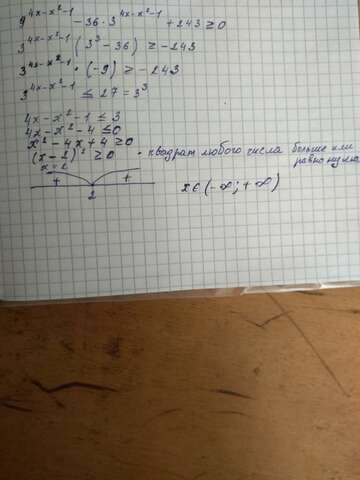 9^{4x-x²-1} - 36 · 3^{4x-x²-1} + 243 ≥ 0
3^{4x-x²-1} (3³ - 36) ≥ -243
3^{4x-x²-1} · (-9) ≥ -243
3^{4x-x²-1} ≤ 27 = 3³
4x - x² - 1 ≤ 3
4x - x² - 4 ≤ 0
x² - 4x + 4 ≥ 0
(x - 2)² ≥ 0 - квадрат любого числа больше или равно нулю
x = 2
+ +
2
x ∈ (-∞; +∞)